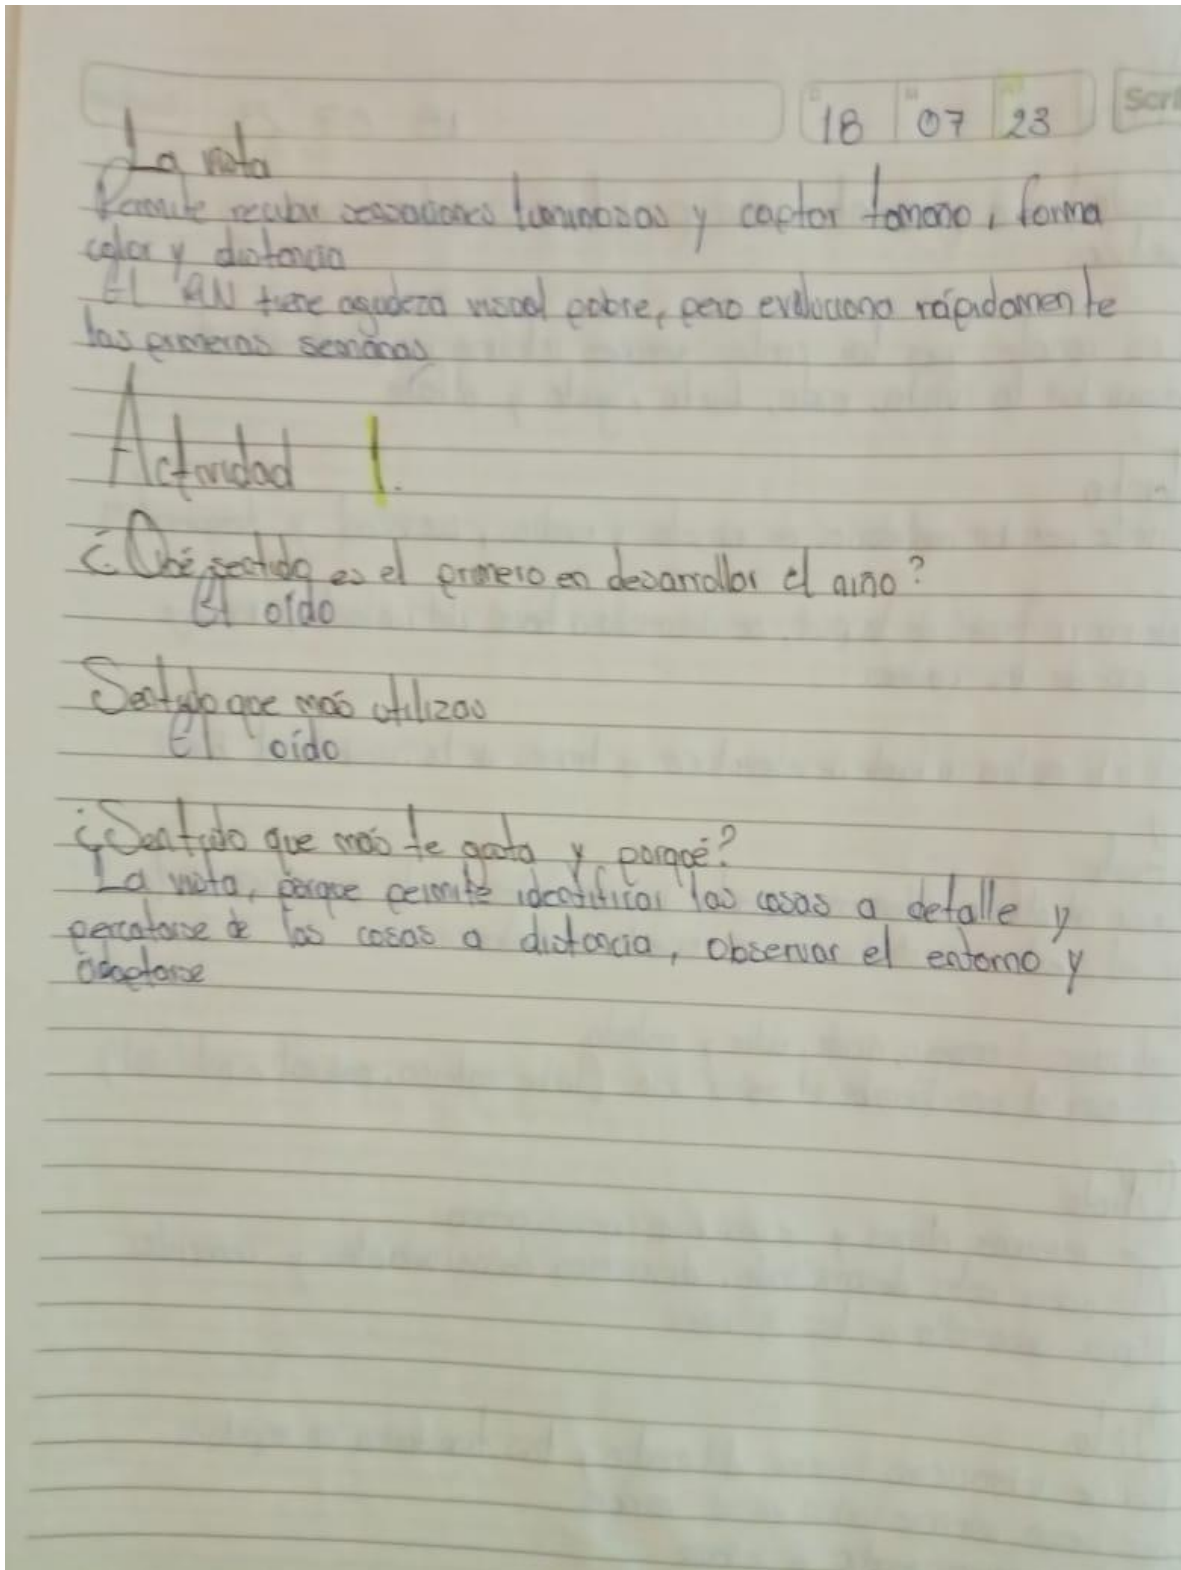 18 07 23
Scri
La vista
Permite recibir sensaciones luminosas y captar tamaño, forma
color y distancia
El RN tiene agudeza visual pobre, pero evoluciona rápidamente
las primeras semanas
Actividad 1.
¿Qué sentido es el primero en desarrollar el niño?
El oído
Sentido que más utilizas
El oído
¿Sentido que más te gusta y porqué?
La vista, porque permite identificar las cosas a detalle y
percatarse de las cosas a distancia, observar el entorno y
adaptarse